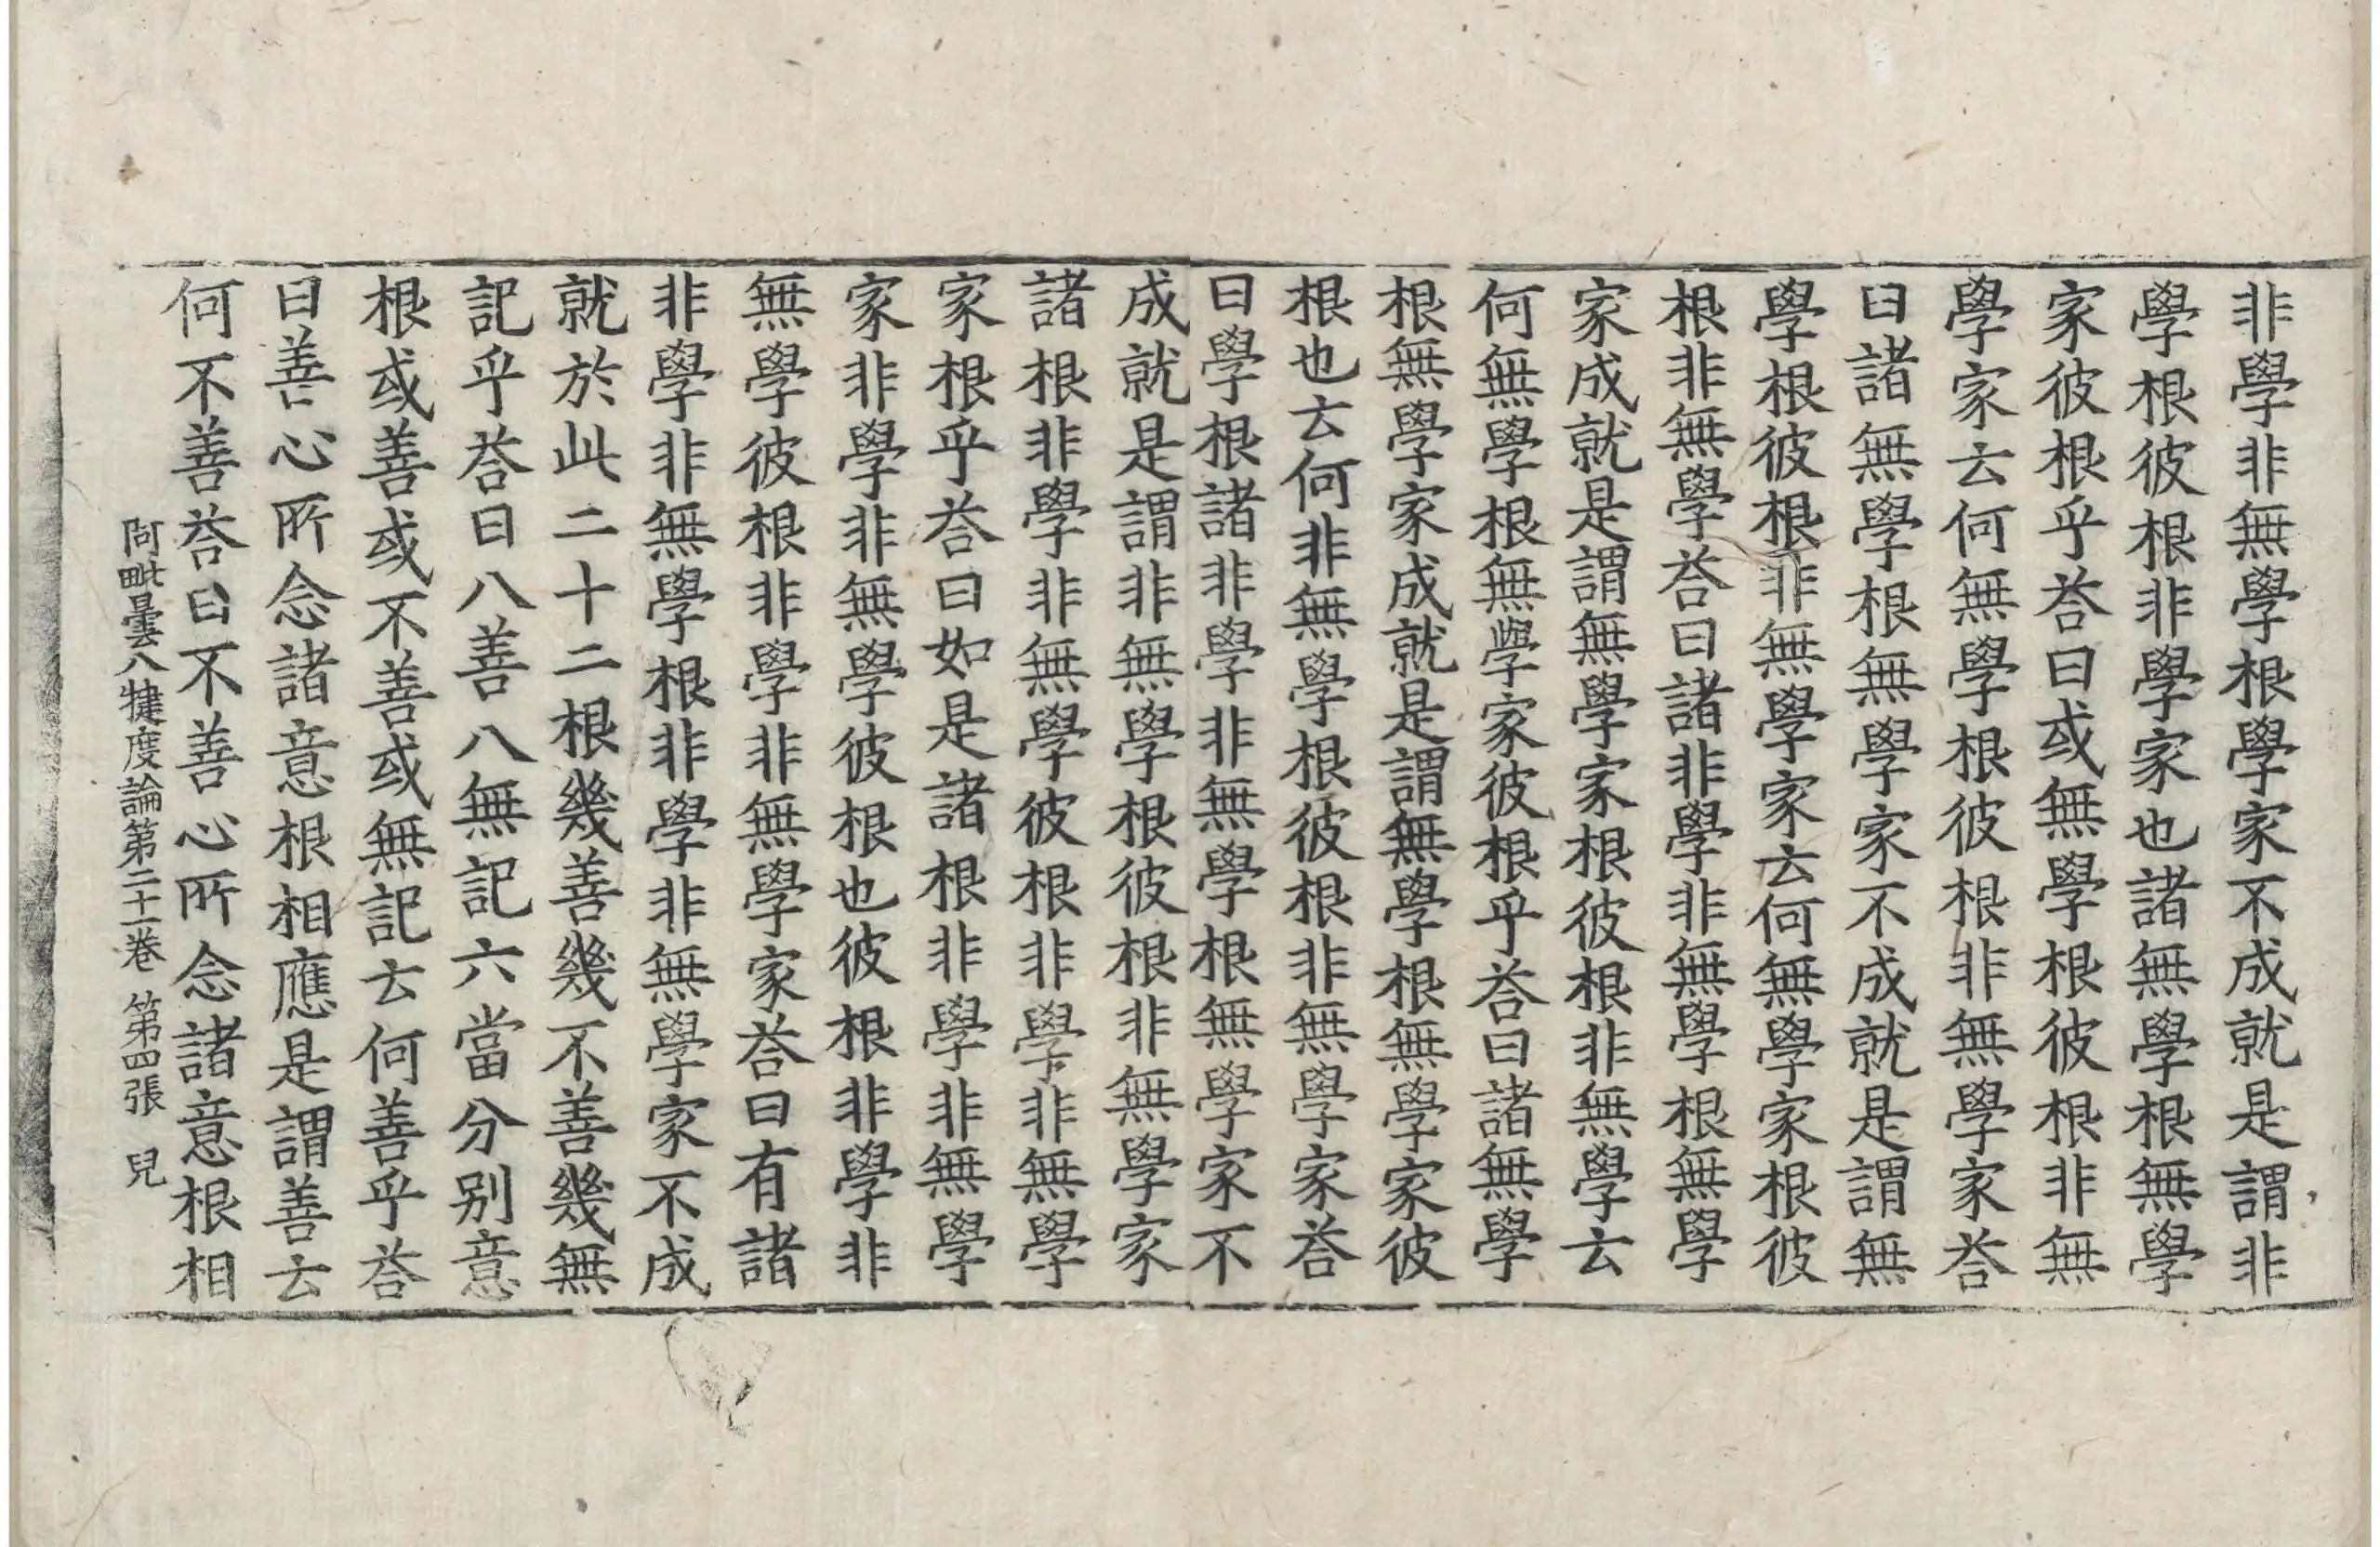 非學非無學根學家不成就是謂非
學根彼根非學家也諸無學根無學
家彼根乎荅曰或無學根彼根非無
學家云何無學根彼根非無學家荅
曰諸無學根無學家不成就是謂無
學根彼根非無學家云何無學家根彼
根非無學荅曰諸非學非無學根無學
家成就是謂無學家根彼根非無學云
何無學根無學家彼根乎荅曰諸無學
根無學家成就是謂無學根無學家彼
根也云何非無學根彼根非無學家荅
曰學根諸非學非無學根無學家不
成就是謂非無學根彼根非無學家
諸根非學非無學彼根非學非無學
家根乎荅曰如是諸根非學非無學
家非學非無學彼根也彼根非學非
無學彼根非學非無學家荅曰有諸
非學非無學根非學非無學家不成
就於此二十二根幾善幾不善幾無
記乎荅曰八善八無記六當分别意
根或善或不善或無記云何善乎荅
曰善心所念諸意根相應是謂善云
何不善荅曰不善心所念諸意根相
阿毗曇八犍度論第二十一卷 第四張 兒